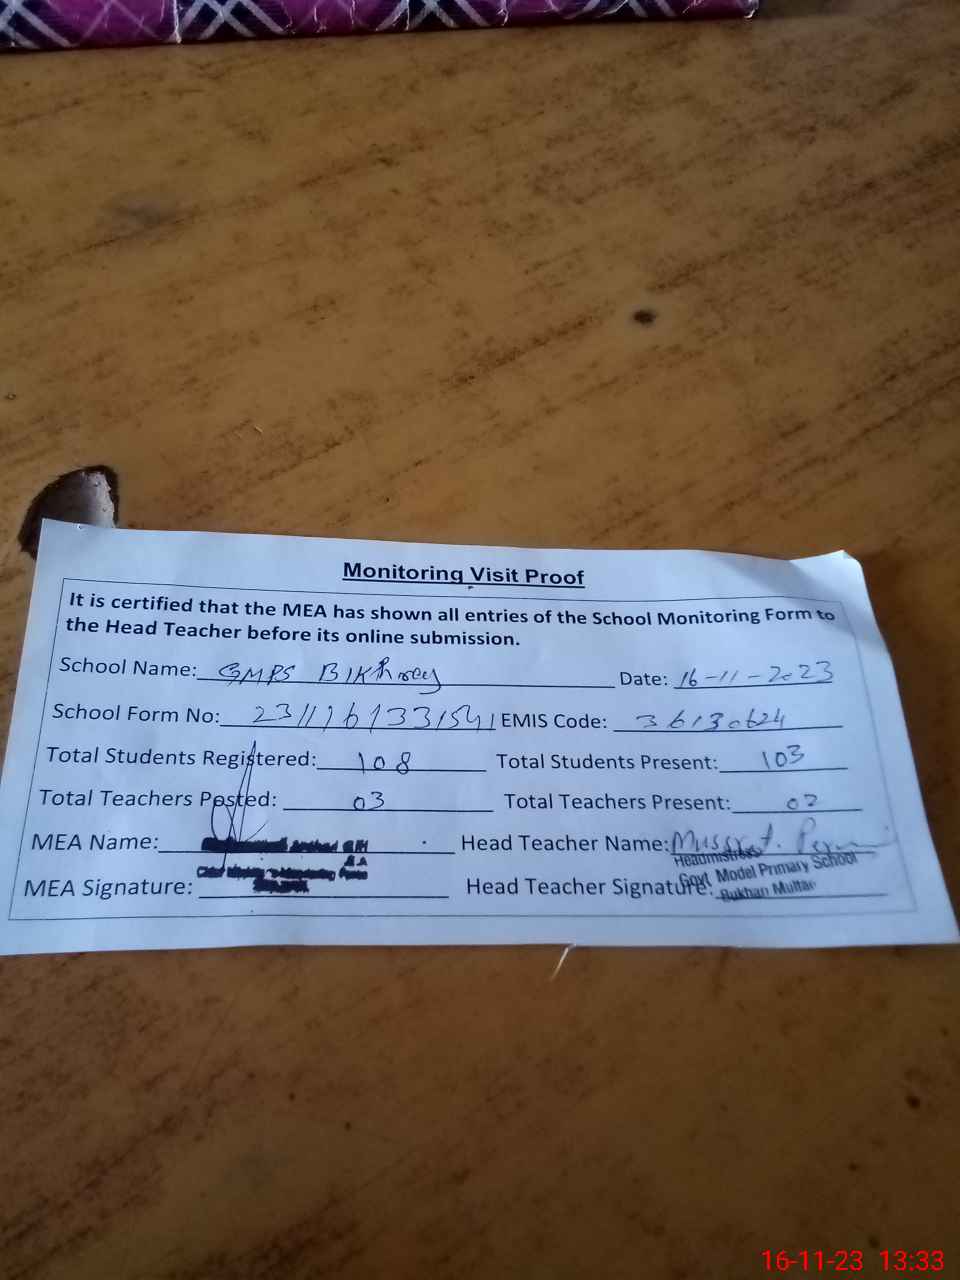 Monitoring Visit Proof
It is certified that the MEA has shown all entries of the School Monitoring Form to
the Head Teacher before its online submission.
School Name: GMPS Date: 16-11-2023
School Form No: EMIS Code: 36130624
Total Students Registered: 108 Total Students Present: 103
Total Teachers Posted: 03 Total Teachers Present: 02
MEA Name: Head Teacher Name: Mussrat
Headmistress
MEA Signature: Head Teacher Signature:
Govt Model Primary School
Multan
16-11-23 13:33